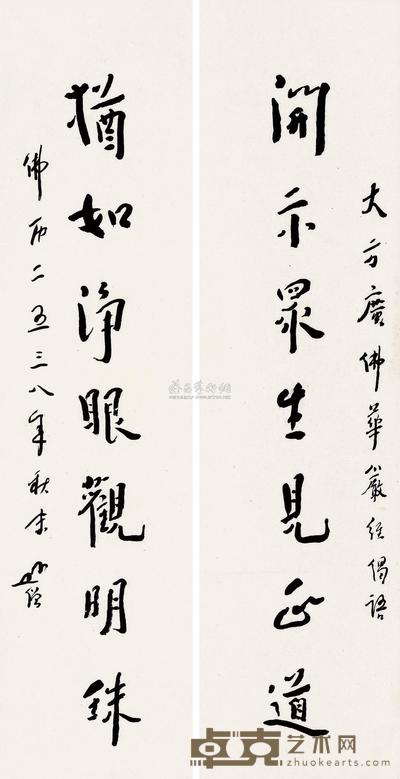 大方廣佛華嚴經偈語
開示眾生見正道
猶如淨眼觀明珠
佛历二五三八年秋末
卓克艺术网
zhuokearts.com